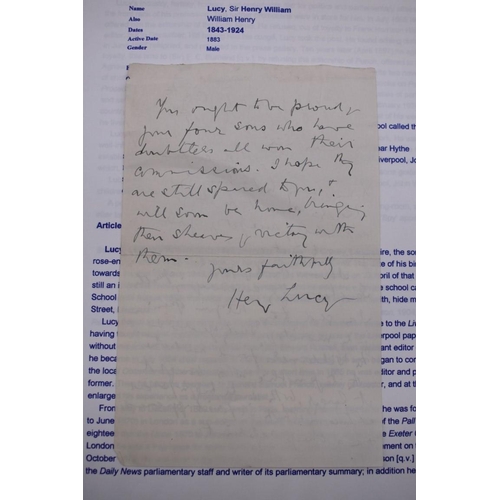 Name Lucy, Sir Henry William
Also William Henry
Dates 1843-1924
Active Date 1883
Gender Male
You ought to be proud of
your four sons who have
doubtless all won their
commissions. I hope they
are still spared to you, &
will soon be home, bringing
their sheaves of victory with
them.
yours faithfully
Henry Lucy
pool called the
ar Hythe
iverpool, Jo
Article
Lucy
ire, the so
rose-en
e of his bir
towards
april of that
still an i
e school ca
School
th, hide m
Street,
Lucy
e to the Liv
having
erpool pap
without
ant editor
he beca
gan to con
the loca
ditor and p
former.
, and at th
enlarge
From
he was fo
to June
of the Pall
eighteen
e Exeter
London,
ement on
October
son [q.v.]
the Daily News parliamentary staff and writer of its parliamentary summary; in addition he